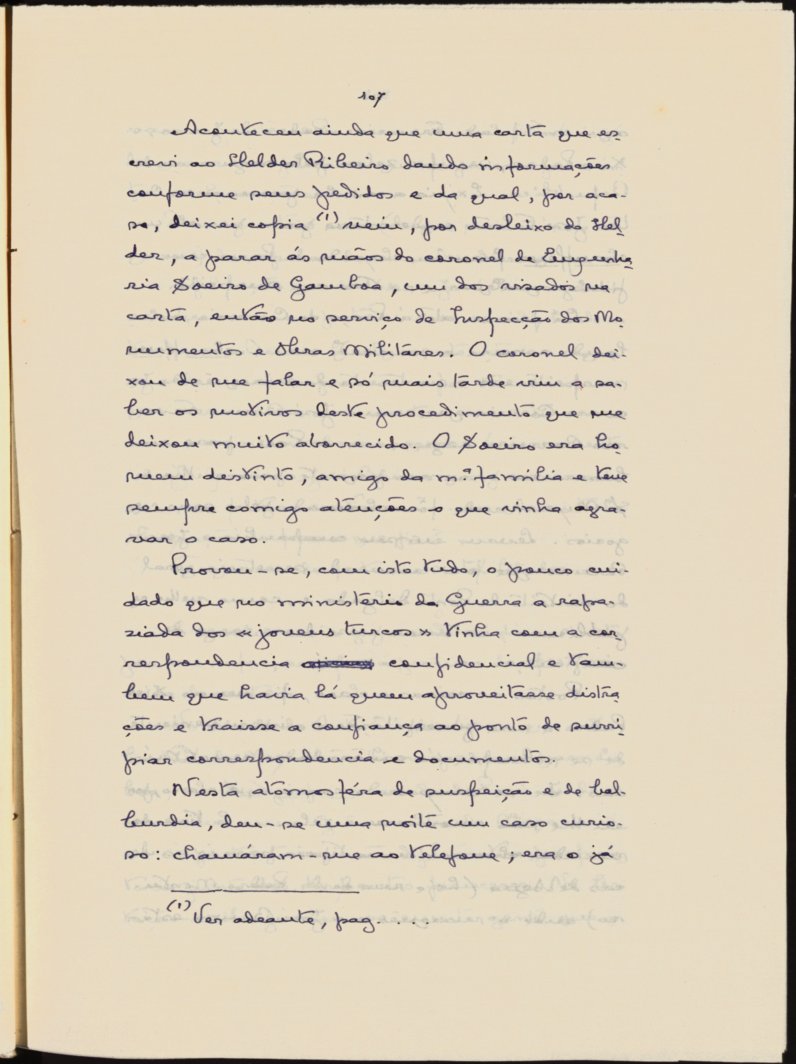 107
Aconteceu ainda que uma carta que es-
crevi ao Helder Ribeiro dando informações
conforme seus pedidos e da qual, por aca-
so, deixei copia (1) veiu, por desleixo do Hel-
der, a parar ás mãos do coronel de Engenha-
ria Soeiro de Gamboa, um dos visados na
carta, então no serviço de Inspecção dos Mo-
numentos e Obras Militares. O coronel dei-
xou de me falar e só mais tarde vim a sa-
ber os motivos deste procedimento que me
deixou muito aborrecido. O Soeiro era ho-
mem distinto, amigo da m.ª família e teve
sempre comigo atenções o que vinha agra-
var o caso.
Provou-se, com isto tudo, o pouco cui-
dado que no ministério da Guerra a rapa-
ziada dos «jovens turcos» tinha com a cor-
respondencia confidencial e tam-
bem que havia lá quem aproveitasse distra-
ções e traisse a confiança ao ponto de surri-
piar correspondencia e documentos.
Nesta atomosféra de suspeição e de bal-
burdia, deu-se uma noite um caso curio-
so: chamáram-me ao telefone; era o já
(1) Ver adeante, pag. . . .